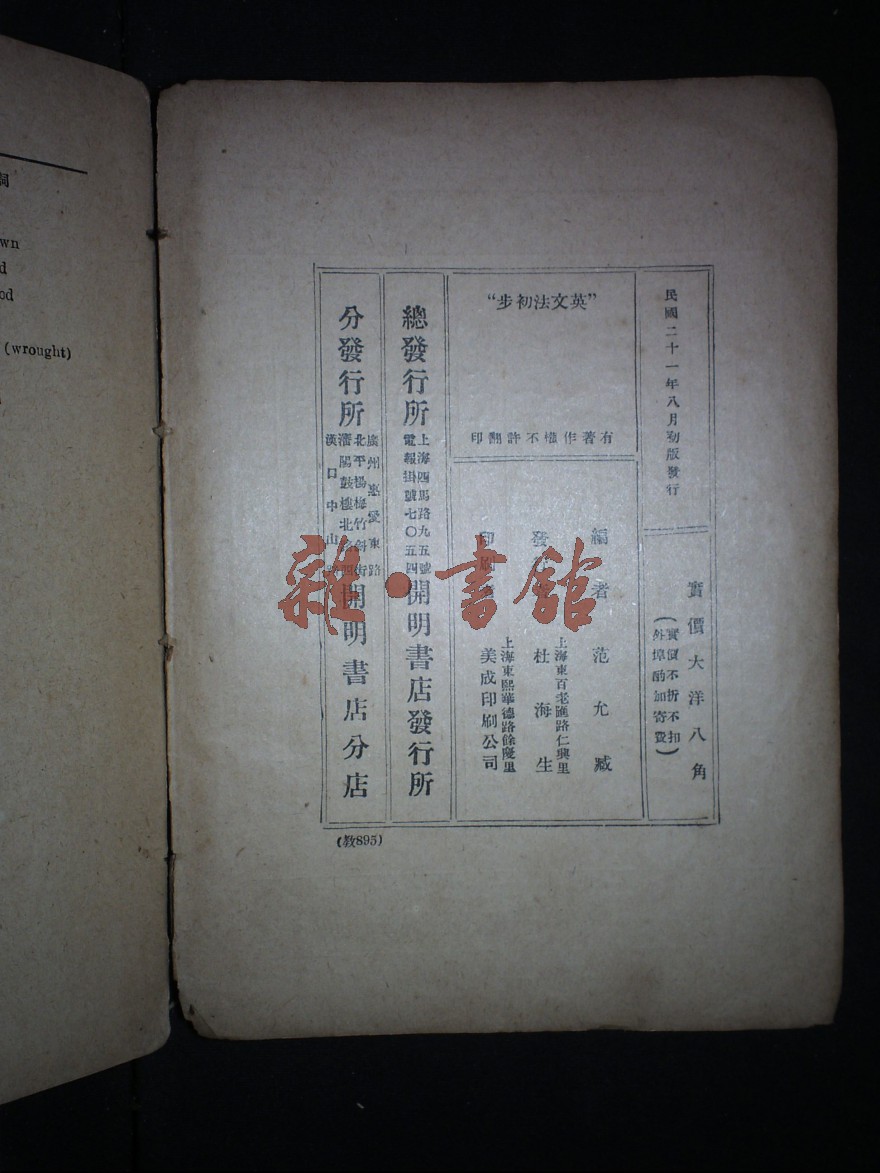 民國二十一年八月初版發行
實價大洋八角
(實價不折不扣
外埠酌加寄費)
"英文法初步"
有著作權不許翻印
編者 范允臧
發行者 杜海生
上海東百老匯路仁興里
印刷者 美成印刷公司
上海東熙華德路餘慶里
總發行所
上海四馬路九五號
電報掛號七〇五四
開明書店發行所
分發行所
廣州惠愛東路
北平楊梅竹斜街
瀋陽鼓樓北
漢口中山路
開明書店分店
(教895)
雜·書館
詞
wn
d
od
(wrought)